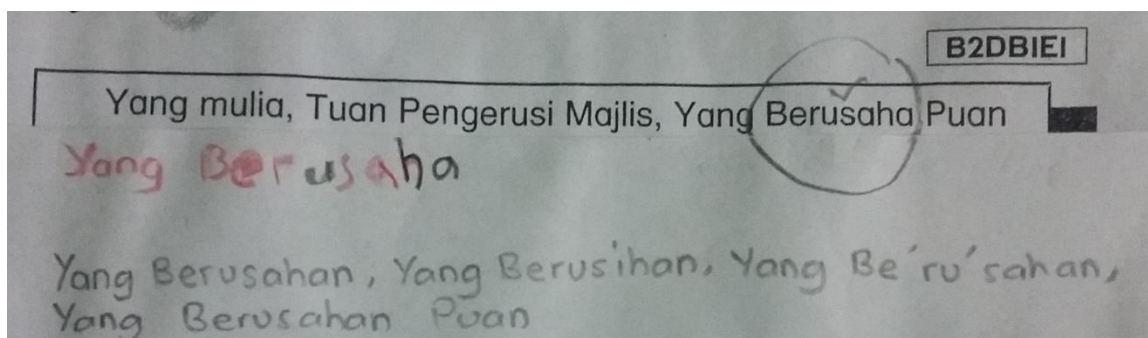 B2DBIEI
Yang mulia, Tuan Pengerusi Majlis, Yang Berusaha Puan
Yang Berusaha
Yang Berusahan, Yang Berusihan, Yang Be'ru'sahan,
Yang Berusahan Puan